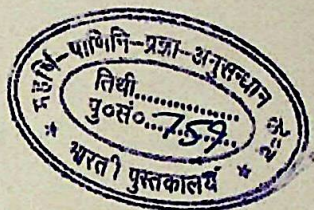 महर्षि-पाणिनि-प्रज्ञा-अनुसन्धान
तिथी..............
पु०सं०...759......
* भारती पुस्तकालयं *